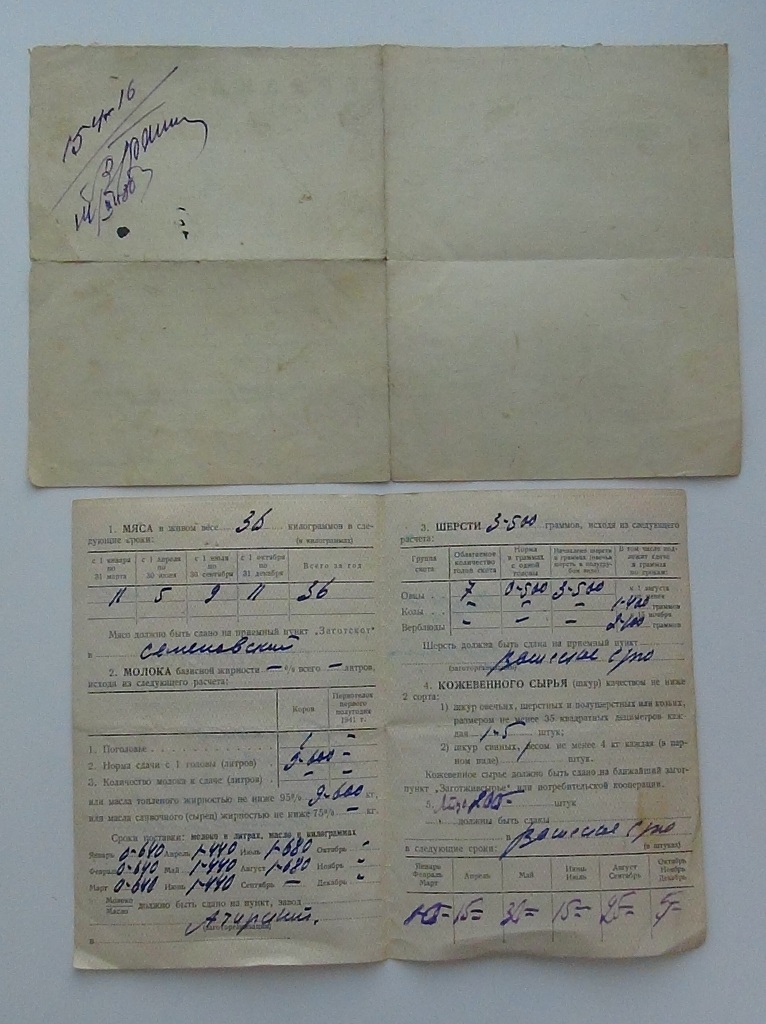 15
16
1. МЯСА в живом весе 36 килограммов в сле-
дующие сроки: (в килограммах)
с 1 января по 31 марта
с 1 апреля по 30 июня
с 1 июля по 30 сентября
с 1 октября по 31 декабря
Всего за год
11 5 9 11 36
Мясо должно быть сдано на приемный пункт „Заготскот"
в Семеновский
2. МОЛОКА базисной жирности — % всего — литров,
исходя из следующего расчета:
Коров
Первотелок первого полугодия 1941 г.
1. Поголовье 1 —
2. Норма сдачи с 1 головы (литров) 9-600 —
3. Количество молока к сдаче (литров) — —
или масла топленого жирностью не ниже 95% 9-600 кг.
или масла сливочного (сырец) жирностью не ниже 75% кг.
Сроки поставки: молоко в литрах, масло в килограммах
Январь 0-640 Апрель 1-440 Июль 1-680 Октябрь
Февраль 0-640 Май 1-440 Август 1-680 Ноябрь
Март 0-640 Июнь 1-440 Сентябрь — Декабрь
Молоко
Масло
должно быть сдано на пункт, завод
(заготорганизация)
в
3. ШЕРСТИ 3-500 граммов, исходя из следующего
расчета:
Группа скота
Облагаемое количество голов скота
Норма в граммах с одной головы
Начислено шерсти в граммах
В том числе подлежит сдаче в граммах по срокам:
Овцы 7 0-500 3-500
к 1 августа
Козы — — — 1-400 граммов
ноября
Верблюды — — — 2-100 граммов
Шерсть должна быть сдана на приемный пункт
(заготорганизация)
4. КОЖЕВЕННОГО СЫРЬЯ (шкур) качеством не ниже
2 сорта:
1) шкур овечьих, шерстных и полушерстных или козьих,
размером не менее 35 квадратных дециметров каж-
дая 1-5 штук;
2) шкур свиных, весом не менее 4 кг каждая (в пар-
ном виде) штук.
Кожевенное сырье должно быть сдано на ближайший загот-
пункт „Заготживсырье" или потребительской кооперации.
5. Яйцо штук
должны быть сданы
в
в следующие сроки: (в штуках)
Январь Февраль Март
Апрель
Май
Июнь Июль
Август Сентябрь
Октябрь Ноябрь Декабрь
15= 15= 25= 5=